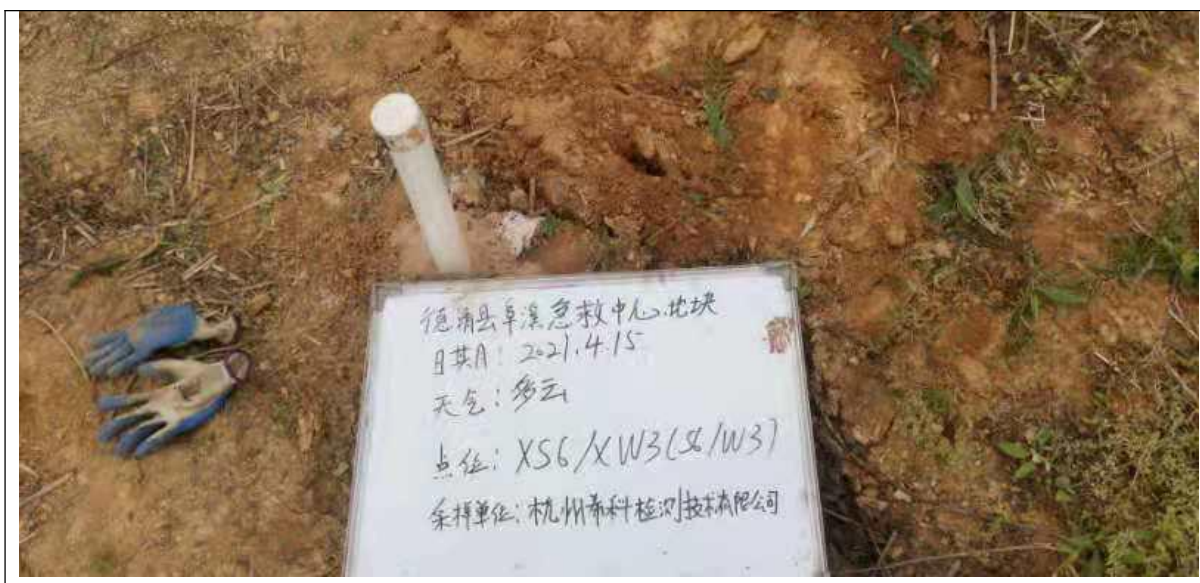 德清县阜溪急救中心地块
日期：2021.4.15
天气：多云
点位：XS6/XW3(S6/W3)
采样单位：杭州希科检测技术有限公司